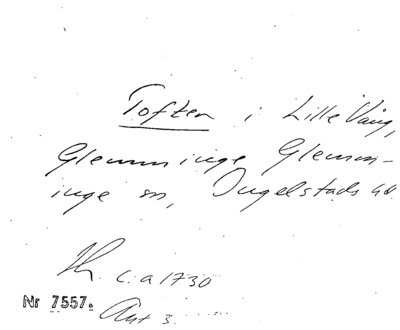 Toften i Lille Vång,
Glemminge Glemm-
inge sn, Ingelstads hd.
c.a 1730
Nr 7557.
Ant 3.